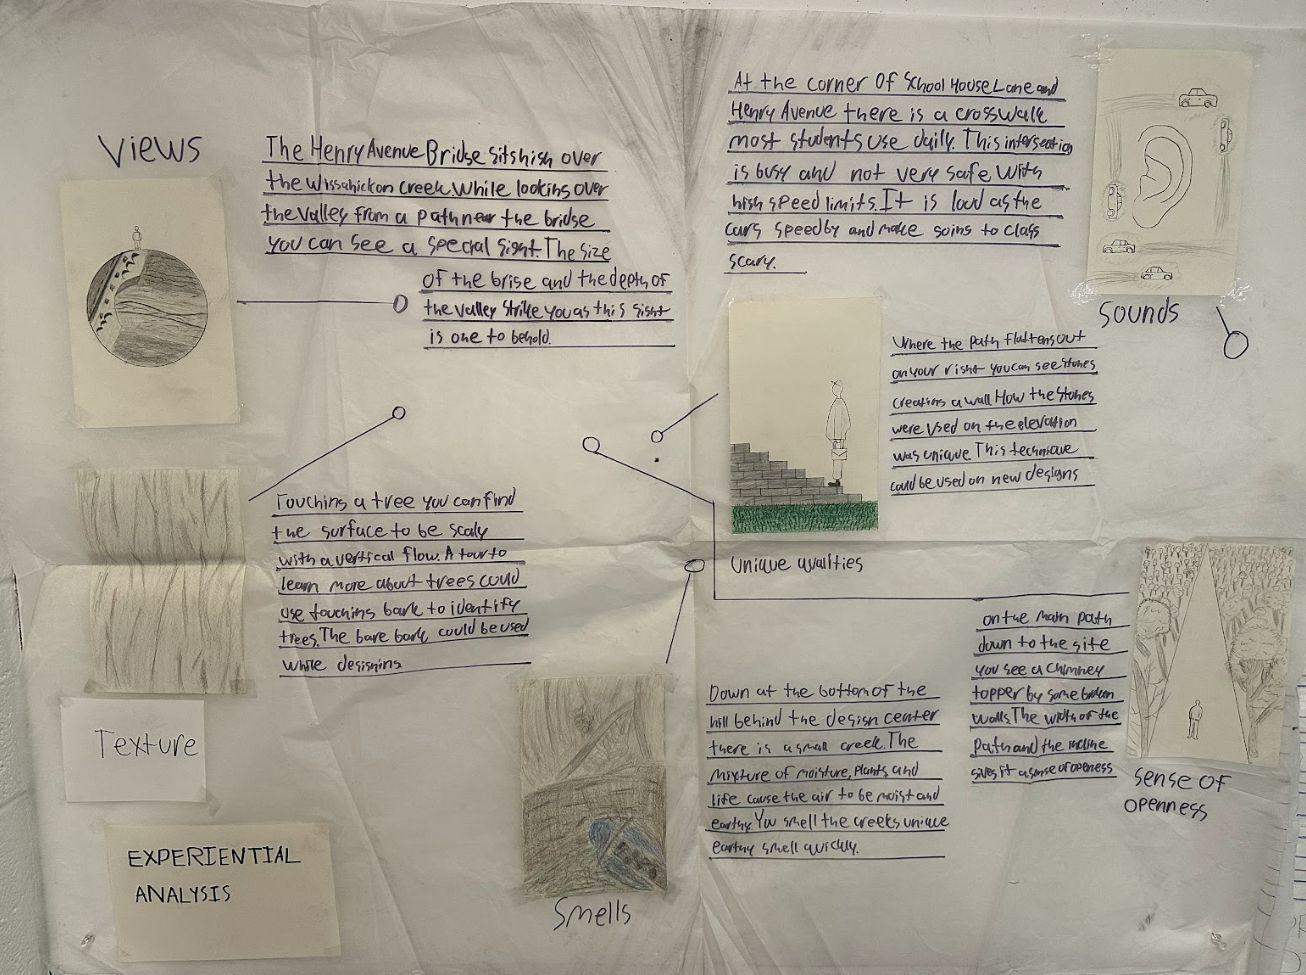 Views
The Henry Avenue Bridge sits high over
the Wissahickon creek. While looking over
the valley from a path near the bridge
you can see a special sight. The size
of the brige and the depth of
the valley strike you as this sight
is one to behold.
At the corner Of School House Lane and
Henry Avenue there is a crosswalk
most students use daily. This intersection
is busy and not very safe with
high speed limits. It is loud as the
cars speed by and make going to class
scary.
Sounds
Where the path flattens out
on your right you can see stones
creating a wall How the stones
were used on the elevation
was unique. This technique
could be used on new designs
Unique qualities
Touching a tree you can find
the surface to be scaly
with a vertical flow. A tour to
learn more about trees could
use touching bark to identify
trees. The bare bark could be used
while designing
Texture
EXPERIENTIAL
ANALYSIS
Down at the bottom of the
hill behind the design center
there is a small creek. The
mixture of moisture, plants, and
life cause the air to be moist and
earthy. You smell the creeks unique
earthy smell quickly.
Smells
on the main path
down to the site
you see a chimney
topper by some broken
walls. The width of the
path and the incline
gives it a sense of openess
Sense of
openness